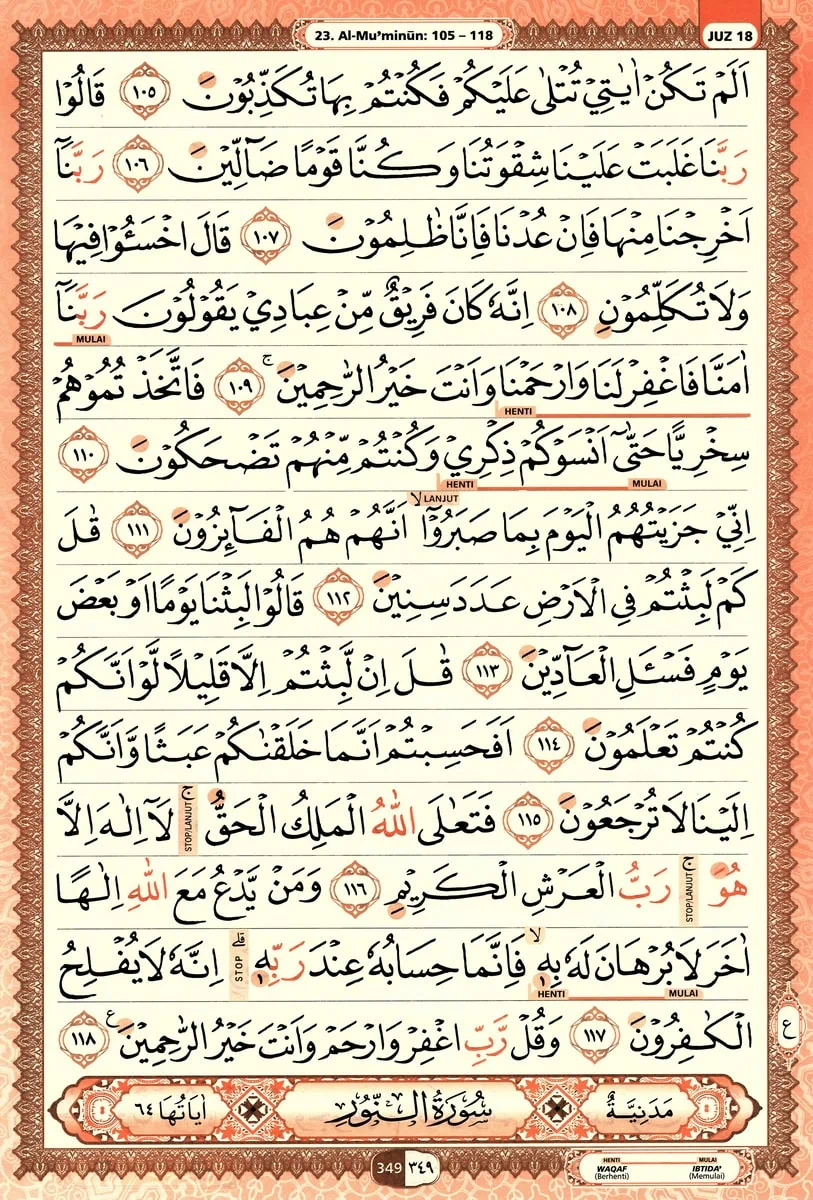 23. Al-Mu’minūn: 105 – 118
JUZ 18
اَلَمْ تَكُنْ اٰيٰتِيْ تُتْلٰى عَلَيْكُمْ فَكُنْتُمْ بِهَا تُكَذِّبُوْنَ ١٠٥ قَالُوْا
رَبَّنَا غَلَبَتْ عَلَيْنَا شِقْوَتُنَا وَكُنَّا قَوْمًا ضَاۤلِّيْنَ ١٠٦ رَبَّنَآ
اَخْرِجْنَا مِنْهَا فَاِنْ عُدْنَا فَاِنَّا ظٰلِمُوْنَ ١٠٧ قَالَ اخْسَـُٔوْا فِيْهَا
وَلَا تُكَلِّمُوْنِ ١٠٨ اِنَّهٗ كَانَ فَرِيْقٌ مِّنْ عِبَادِيْ يَقُوْلُوْنَ رَبَّنَآ
MULAI
اٰمَنَّا فَاغْفِرْ لَنَا وَارْحَمْنَا وَاَنْتَ خَيْرُ الرّٰحِمِيْنَ ۚ ١٠٩ فَاتَّخَذْتُمُوْهُمْ
HENTI
سِخْرِيًّا حَتّٰٓى اَنْسَوْكُمْ ذِكْرِيْ وَكُنْتُمْ مِّنْهُمْ تَضْحَكُوْنَ ١١٠
MULAI HENTI
LANJUT
اِنِّيْ جَزَيْتُهُمُ الْيَوْمَ بِمَا صَبَرُوْٓاۙ اَنَّهُمْ هُمُ الْفَاۤىِٕزُوْنَ ١١١ قٰلَ
كَمْ لَبِثْتُمْ فِى الْاَرْضِ عَدَدَ سِنِيْنَ ١١٢ قَالُوْا لَبِثْنَا يَوْمًا اَوْ بَعْضَ
يَوْمٍ فَسْـَٔلِ الْعَاۤدِّيْنَ ١١٣ قٰلَ اِنْ لَّبِثْتُمْ اِلَّا قَلِيْلًا لَّوْ اَنَّكُمْ
كُنْتُمْ تَعْلَمُوْنَ ١١٤ اَفَحَسِبْتُمْ اَنَّمَا خَلَقْنٰكُمْ عَبَثًا وَّاَنَّكُمْ
اِلَيْنَا لَا تُرْجَعُوْنَ ١١٥ فَتَعٰلَى اللّٰهُ الْمَلِكُ الْحَقُّ ۚ STOP/LANJUT لَآ اِلٰهَ اِلَّا
هُوَ ۚ STOP/LANJUT رَبُّ الْعَرْشِ الْكَرِيْمِ ١١٦ وَمَنْ يَّدْعُ مَعَ اللّٰهِ اِلٰهًا
اٰخَرَ لَا بُرْهَانَ لَهٗ بِهٖۙ فَاِنَّمَا حِسَابُهٗ عِنْدَ رَبِّهٖۗ STOP اِنَّهٗ لَا يُفْلِحُ
MULAI HENTI
الْكٰفِرُوْنَ ١١٧ وَقُلْ رَّبِّ اغْفِرْ وَارْحَمْ وَاَنْتَ خَيْرُ الرّٰحِمِيْنَ ࣖ ١١٨
ع
مَدَنِيَّةٌ سُوْرَةُ النُّوْرِ اٰيَاتُهَا ٦٤
349 ٣٤٩
HENTI MULAI
WAQAF IBTIDA’
(Berhenti) (Memulai)